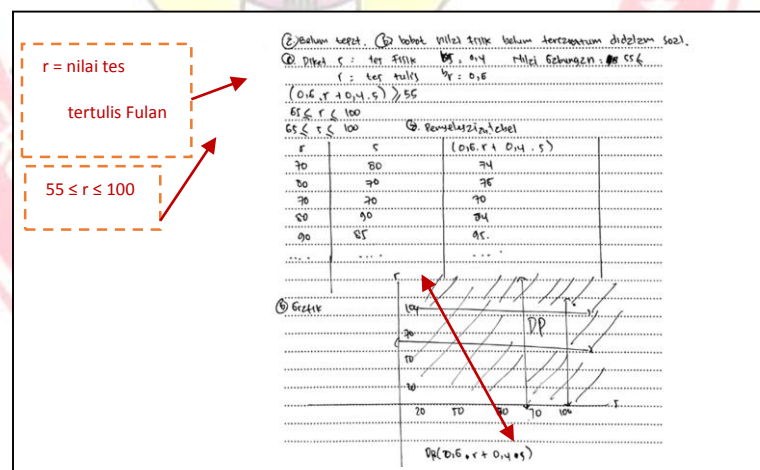 r = nilai tes
tertulis Fulan
55 ≤ r ≤ 100
(2) Belum tepat. (b) bobot nilai fisik belum tercantum didalam soal.
(a) Diket s : tes fisik bs : 0,4 Nilai Gabungan : 55 ≤
r : tes tulis br : 0,6
(0,6 . r + 0,4 . s) ≥ 55
65 ≤ r ≤ 100
65 ≤ s ≤ 100 Penyelesaian tabel
r s (0,6 . r + 0,4 . s)
70 80 74
80 70 76
70 70 70
80 90 84
90 85 95.
.... .... ....
r
(b) Grafik
100
DP
70
50
20
20 50 70 100 s
DP(0,6 . r + 0,4 . s)